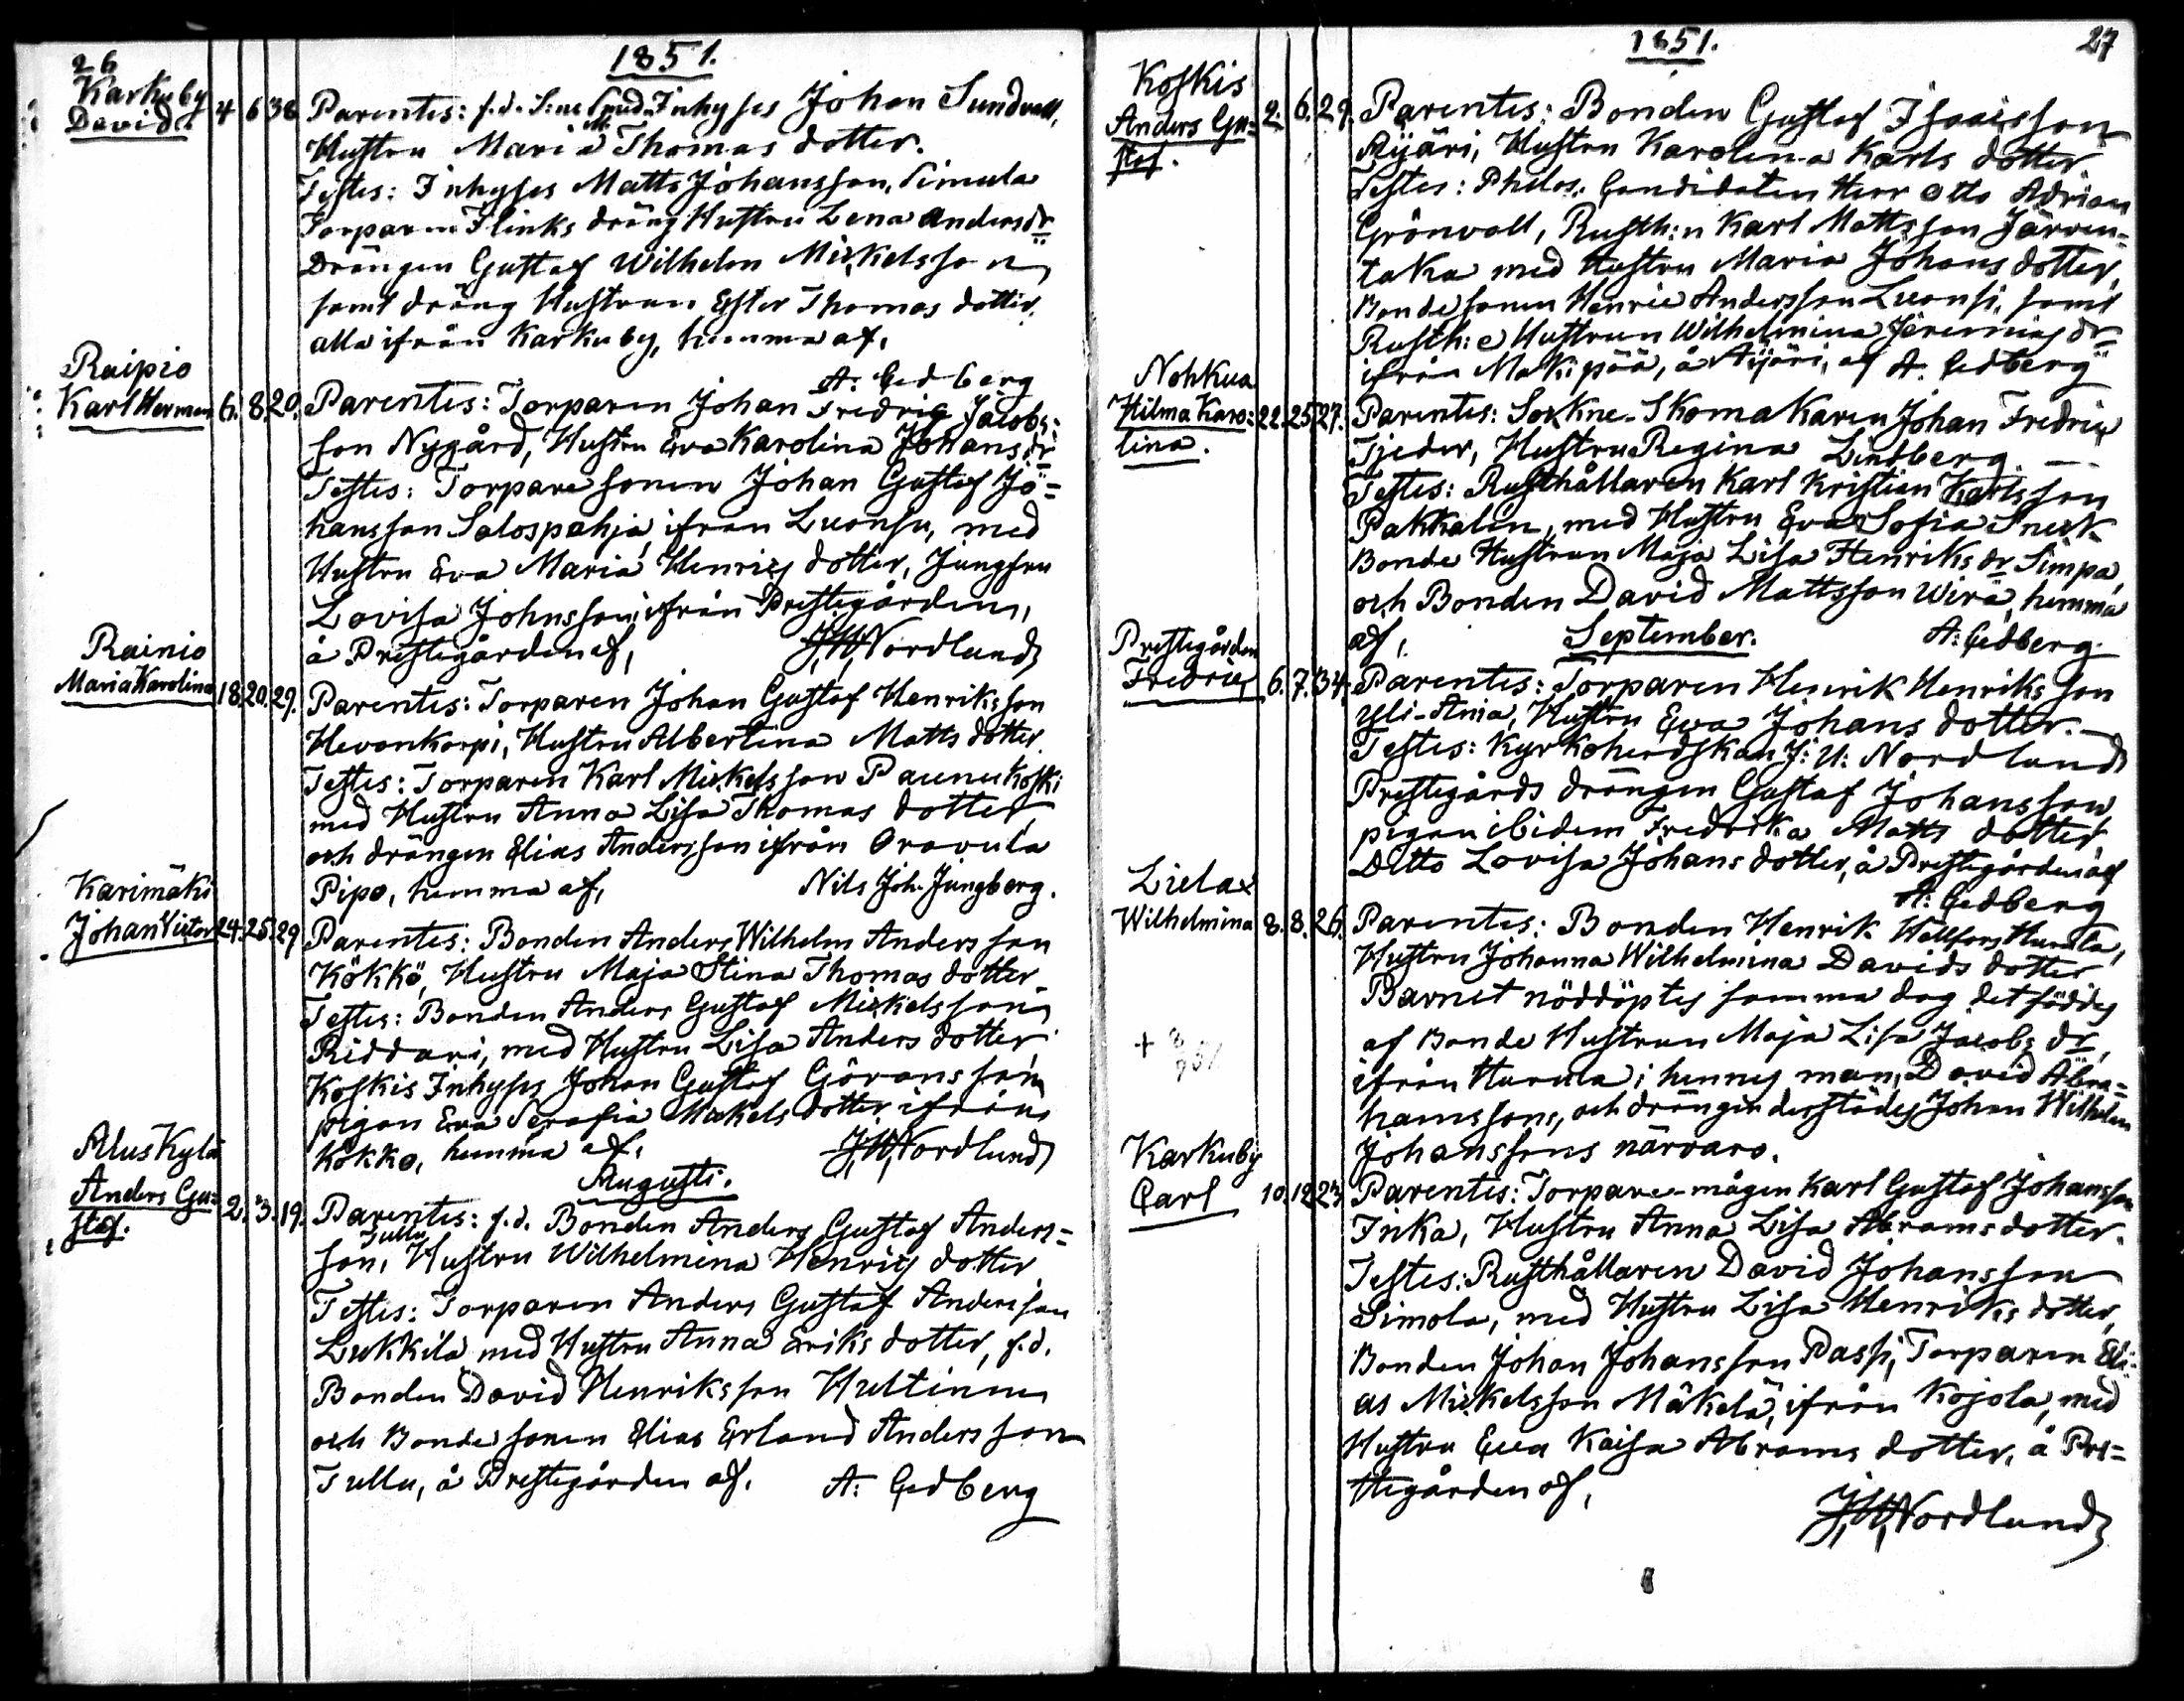 26
1851.
Karkuby
David.
4 6 38
Parentes: f.d. S:ne Smed. Inhyses Johan Sundvall,
Hustru Maria Thomas dotter.
Testes: Inhyses Matts Johansson, Simula
Torparen Flinks dräng Hustru Lena Andersdr
Drängen Gustaf Wilhelm Mickelsson
samt dräng Hustrun Ester Thomas dotter
alla ifrån Karkuby, hemma af,
A: Gedberg
Raipio
Karl Herman
6. 8. 20.
Parentes: Torparen Johan Fredric Jacobs-
son Nygård, Hustru Eva Karolina Johansdr
Testes: Torpare sonen Johan Gustaf Jo=
hansson Salospohja ifrån Luonsu, med
Hustru Eva Maria Henrics dotter, Jungfru
Lovisa Johnsson, ifrån Prestegården,
å Prestegården af, J, U, Nordlund
Rainio
Maria Karolina
18. 20. 29.
Parentes: Torparen Johan Gustaf Henriksson
Hevonkorpi, Hustru Albertina Matts dotter.
Testes: Torparen Karl Mickelsson Paunukoski
med Hustru Anna Lisa Thomas dotter,
och drängen Elias Andersson ifrån Oravula
Pipo, hemma af, Nils Joh. Jungberg.
Karimäki
Johan Victor
24. 25. 29
Parentes: Bonden Anders Wilhelm Andersson
Kökkö, Hustru Maja Stina Thomas dotter
Testes: Bonden Anders Gustaf Mickelsson
Riddari, med Hustru Lisa Anders dotter
Koskis Inhyses Johan Gustaf Göransson
pigan Eva Serafia Mickels dotter ifrån
Kökkö, hemma af, J, U, Nordlund
Augusti.
Aluskylä
Anders Gu=
staf.
2. 3. 19.
Parentes: f.d. Bonden Anders Gustaf Anders=
son, Tullu Hustru Wilhelmina Henrics dotter
Testes: Torparen Anders Gustaf Andersson
Lukkila med Hustru Anna Eriks dotter, f.d.
Bonden David Henriksson Hultinen
och Bonde sonen Elias Erland Andersson
Tullu, å Prestegården af. A: Gedberg
27
1851.
Koskis
Anders Gu=
staf.
2. 6. 29.
Parentes: Bonden Gustaf Isaacsson
Äijäri, Hustru Karolina Karls dotter
Testes: Philos. Candidaten Herr Otto Adrian
Grönvall, Rusth:n Karl Mattsson Järven=
taka med Hustru Maria Johans dotter,
Bonde sonen Henric Andersson Luonsi, samt
Rusth:e Hustrun Wilhelmina Jeremias dr
ifrån Makipää, å Äijäri, af A. Gedberg
Nohkua
Hilma Karo:
lina.
22. 25. 27.
Parentes: Sockne-Skomakaren Johan Fredric
Tjeder, Hustru Regina Lindberg.
Testes: Rusthållaren Karl Kristian Karlsson
Pakkalin, med Hustru Eva Sofia Sneck
Bonde Hustrun Maja Lisa Henriks dr Simpa,
och Bonden David Mattsson Wirä, hemma
af, A: Gedberg.
September.
Prestegården
Fredric
6. 7. 34.
Parentes: Torparen Henrik Henriksson
Yli-Ania, Hustru Eva Johans dotter.
Testes: Kyrkoherdskan J: U: Nordlund
Prestegårds drängen Gustaf Johansson
pigan ibidem Fredrika Matts dotter,
Ditto Lovisa Johans dotter, å Prestegården af
A: Gedberg
Lielax
Wilhelmina
8. 8. 26.
Parentes: Bonden Henrik Hellfors Hurula,
Hustru Johanna Wilhelmina Davids dotter
Barnet nöddöptes samma dag det föddes
af Bonde Hustrun Maja Lisa Jacobs dr,
ifrån Hurula i hennes man, David Abra=
hamssons, och drängen derstädes Johan Wilhelm
Johanssons närvaro.
+ 8/9 51
Karkuby
Carl
10. 12 23
Parentes: Torpare-mågen Karl Gustaf Johansson
Inka, Hustru Anna Lisa Abrams dotter.
Testes: Rusthållaren David Johansson
Simola, med Hustru Lisa Henriks dotter,
Bonden Johan Johansson Passi, Torparen Eli-
as Mickelsson Mäkelä, ifrån Kojola, med
Hustru Eva Kaisa Abrams dotter, å Pre=
stegården af,
J, U, Nordlund